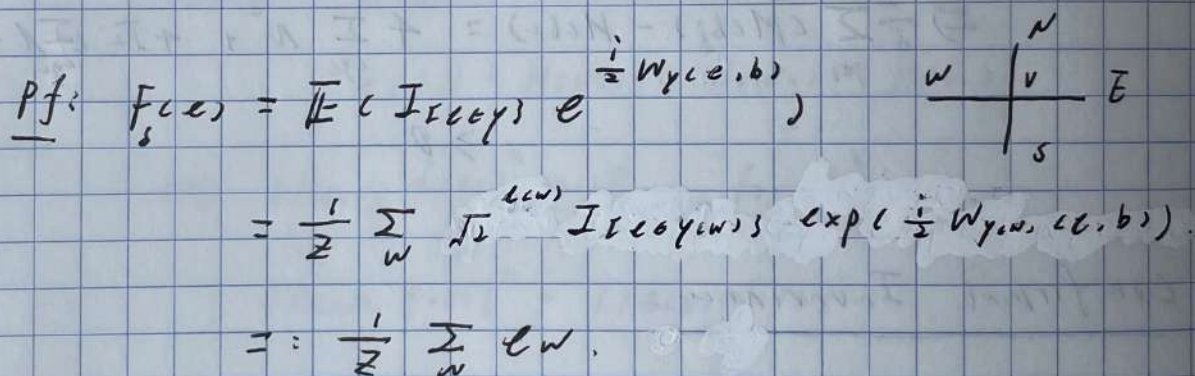 Pf: F_δ(e) = 𝔼( I_{{e∈γ}} e^{\frac{i}{2} W_γ(e,b)} )
N
W V E
S
= \frac{1}{Z} Σ_w √2^{ℓ(w)} I_{{e∈γ(w)}} exp( \frac{i}{2} W_{γ(w)}(e,b) ).
=: \frac{1}{Z} Σ_w e_w.